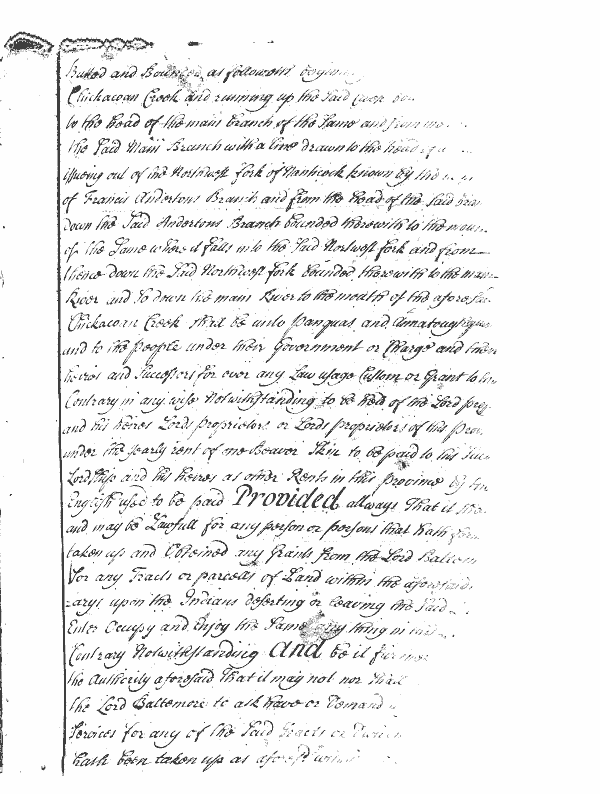 Butted and Bounded as followeth begining
Chickacoan Creek and running up the Said Creek
to the head of the main branch of the Same and from
the Said Main Branch with a line drawn to the head
issueing out of the Northwest fork of Nanticock known by the
of Francis Andertons Branch and from the head of the Said
down the Said Andertons Branch bounded therewith to the
of the Same where it falls into the Said Norwest fork and from
thence down the Said Northwest fork bounded therewith to the main
River and So down the main River to the mouth of the afores
Chickacoan Creek shall be unto Panquas and Annatoughquan
and to the people under their Government or Charge and their
heires and Successors for ever any Law usage Custom or Grant to the
Contrary in any wise Notwithstanding to be held of the Lord
and his heires Lords proprietors or Lords proprietors of this Prov
under the yearly rent of one Beaver Skin to be paid to his
Lordship and his heires as other Rents in this province by the
English used to be paid Provided allways That it
and may be Lawfull for any person or persons that hath
taken up and Obteined any Grants from the Lord Baltem
for any Tracts or parcells of Land within the aforesaid
upon the Indians deserting or leaving the Said
Enter Occupy and Enjoy the Same any thing in
Contrary Notwithstanding And be it further
the Authority aforesaid That it may not nor shall
the Lord Baltemore to ask have or Demand
Services for any of the Said Tracts or
hath been taken up as aforesd